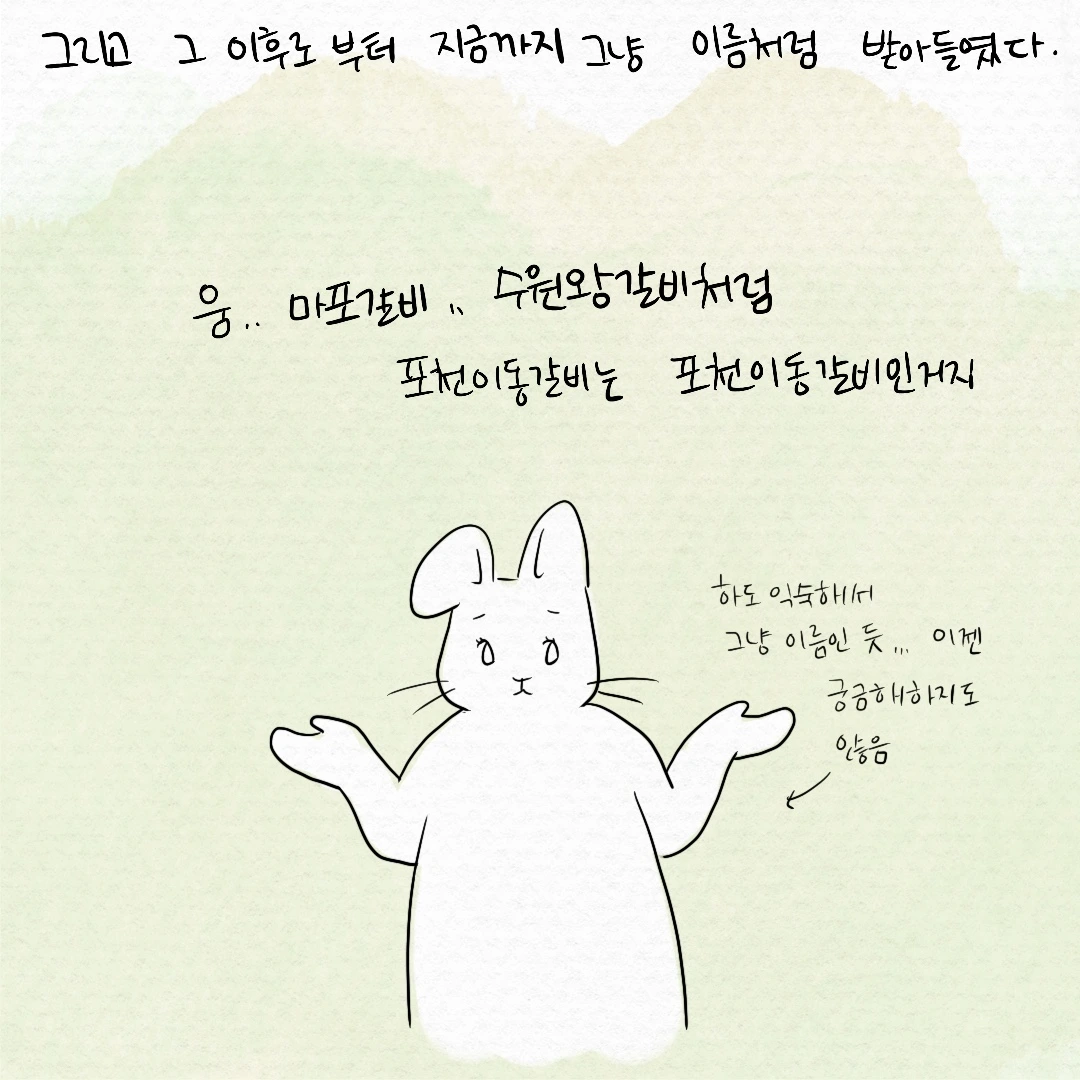 그리고 그 이후로 부터 지금까지 그냥 이름처럼 받아들였다.
웅.. 마포갈비.. 수원왕갈비처럼
포천이동갈비는 포천이동갈비인거지
하도 익숙해서
그냥 이름인 듯... 이젠
궁금해하지도
않음